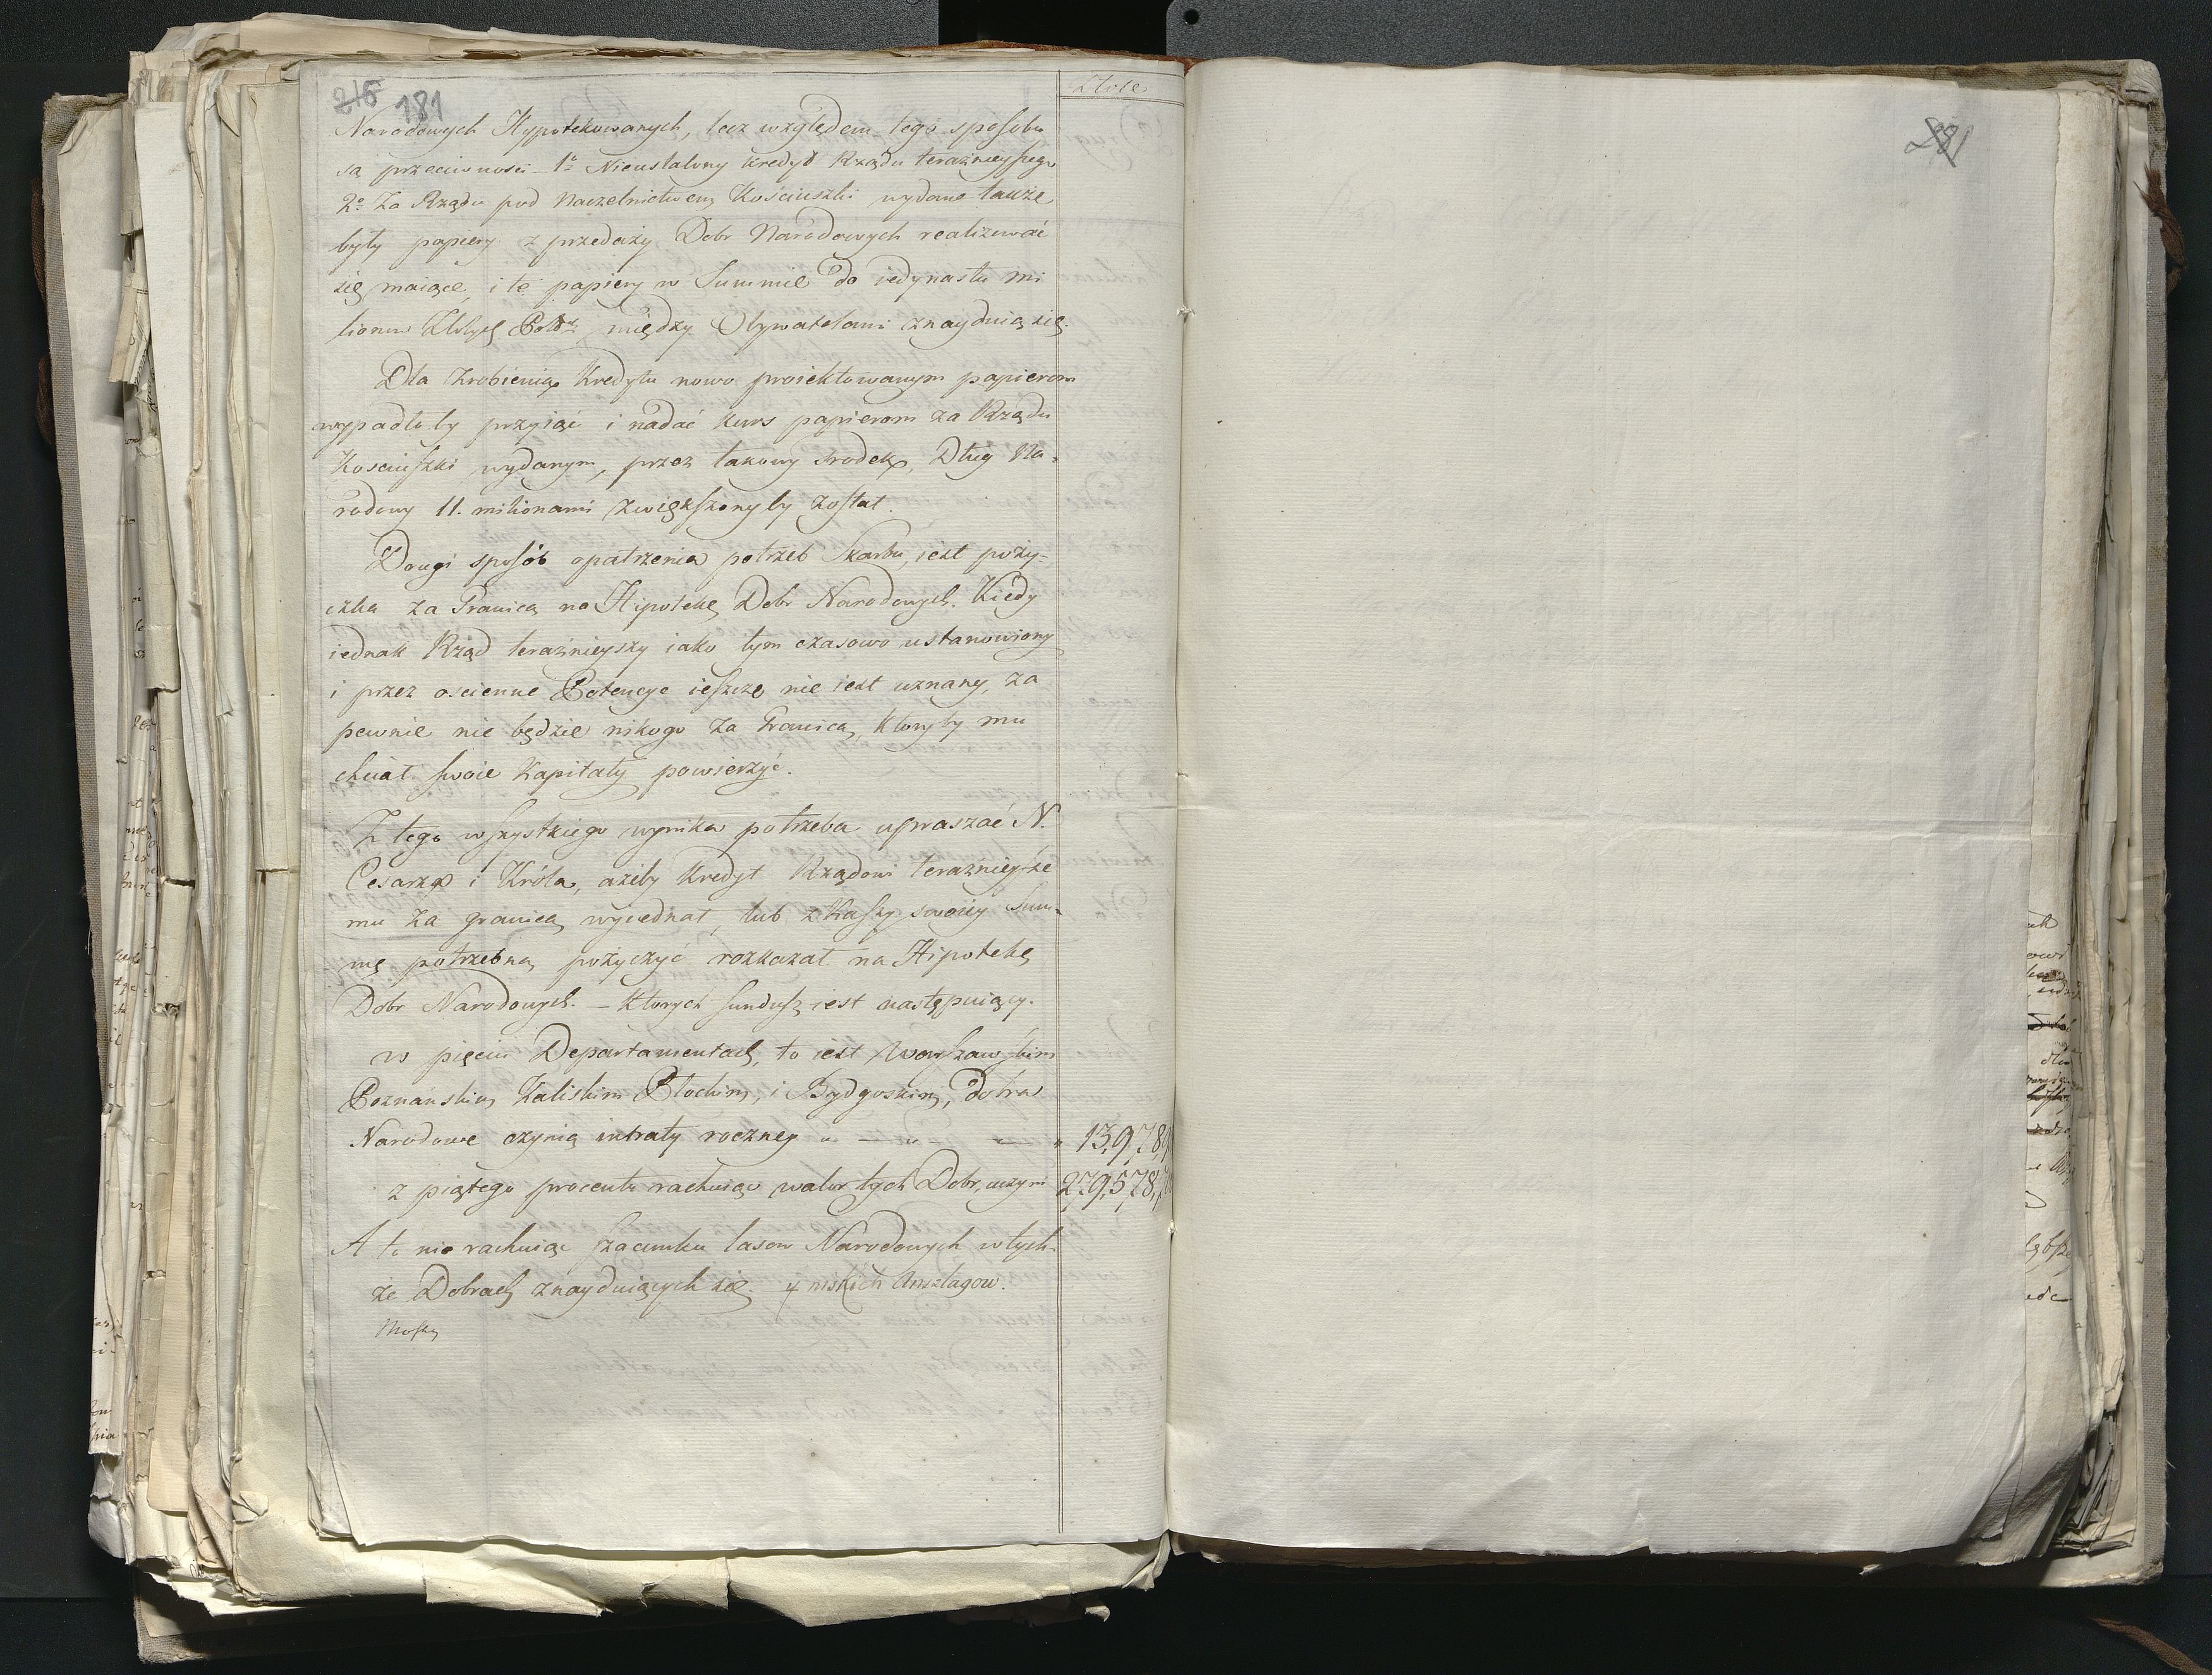 216 181
Złote
Narodowych Hypotekowanych, lecz względem tego sposobu
są przeciwnosci – 1º Nieustalony kredyt Rządu teraznieyszego
2º Za Rządu pod Naczelnictwem Kościuszki wydane także
były papiery z przedaży Dobr Narodowych realizować
się maiące, i te papiery w Summie do iedynastu mi
lionow Złotych Polskch między Obywatelami znayduią się.
Dla zrobienia Kredytu nowo proiektowanym papierom
wypadłoby przyiąć i nadać kurs papierom za Rządu
Kosciuszki wydanym, przez takowy srodek, Dług Na-
rodowy 11. milionami zwiększonyby został.
Drugi sposób opatrzenia potrzeb Skarbu, iest poży-
czka za Granicą na Hipotekę Dobr Narodowych. Kiedy
iednak Rząd teraźnieyszy iako tym czasowo ustanowiony
i przez oscienne Potencye ieszcze nie iest uznany, za
pewnie nie będzie nikogo za Granicą, ktoryby mu
chciał swoie Kapitały powierzyć.
Z tego wszystkiego wynika potrzeba upraszać N.
Cesarza i Króla, ażeby Kredyt Rządowi teraźnieysze
mu za granicą wyiednał, lub z Kassy swoiey Sum-
mę potrzebną pożyczyć rozkazał na Hipotekę
Dobr Narodowych. – Ktorych fundusz iest następuiący.
w pięciu Departamentach, to iest Warszawskim
Poznanskim Kaliskim Płockim, i Bydgoskim, dobra
Narodowe czynią intraty roczney " — " – — " 13,978,9
z piątego procentu rachuiąc walor tych Dobr, uczyni 279,578,
A to nie rachuiąc szacunku lasow Narodowych w tych-
że Dobrach znayduiących się y niskich Anszlagow.
281